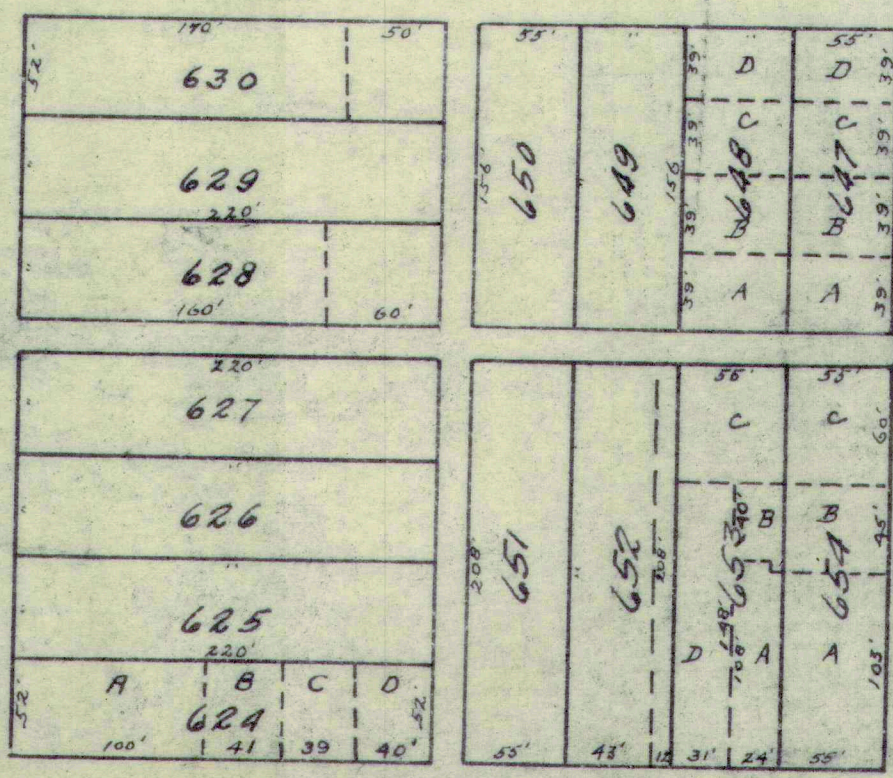 170' 50'
52'
630
"
629
220'
"
628
160' 60'
55' " " 55'
39' D D 39'
39' C C 39'
156' 650 649 156 648 647
39' B B 39'
39' A A 39'
220'
"
627
"
626
"
625
220'
52' A B C D 52'
624
100' 41 39 40'
55' 55'
C C 60'
40' B B 45'
208' 651 " 652 208' 653 654
D 108' A A 103'
55' 43' 12 31' 24' 55'